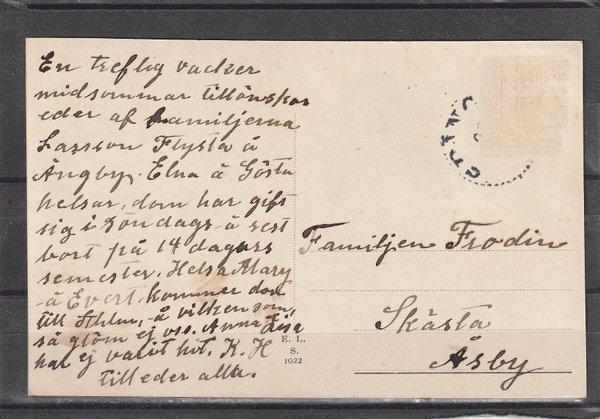 En treflig vacker
midsommar tillönskas
eder af familjerna
Larsson Flysta å
Ängby, Elna å Gösta
helsar, dom har gift
sig i Söndags å rest
bort på 14 dagars
semester. Helsa Mary
å Evert, kommer dom
till Sthlm, å vilken som,
så glöm ej oss. Anna Lisa
har ej varit hit. K. H
till eder alla.
Familjen Frodin
Skästa
Åsby
E. L.
S.
1022